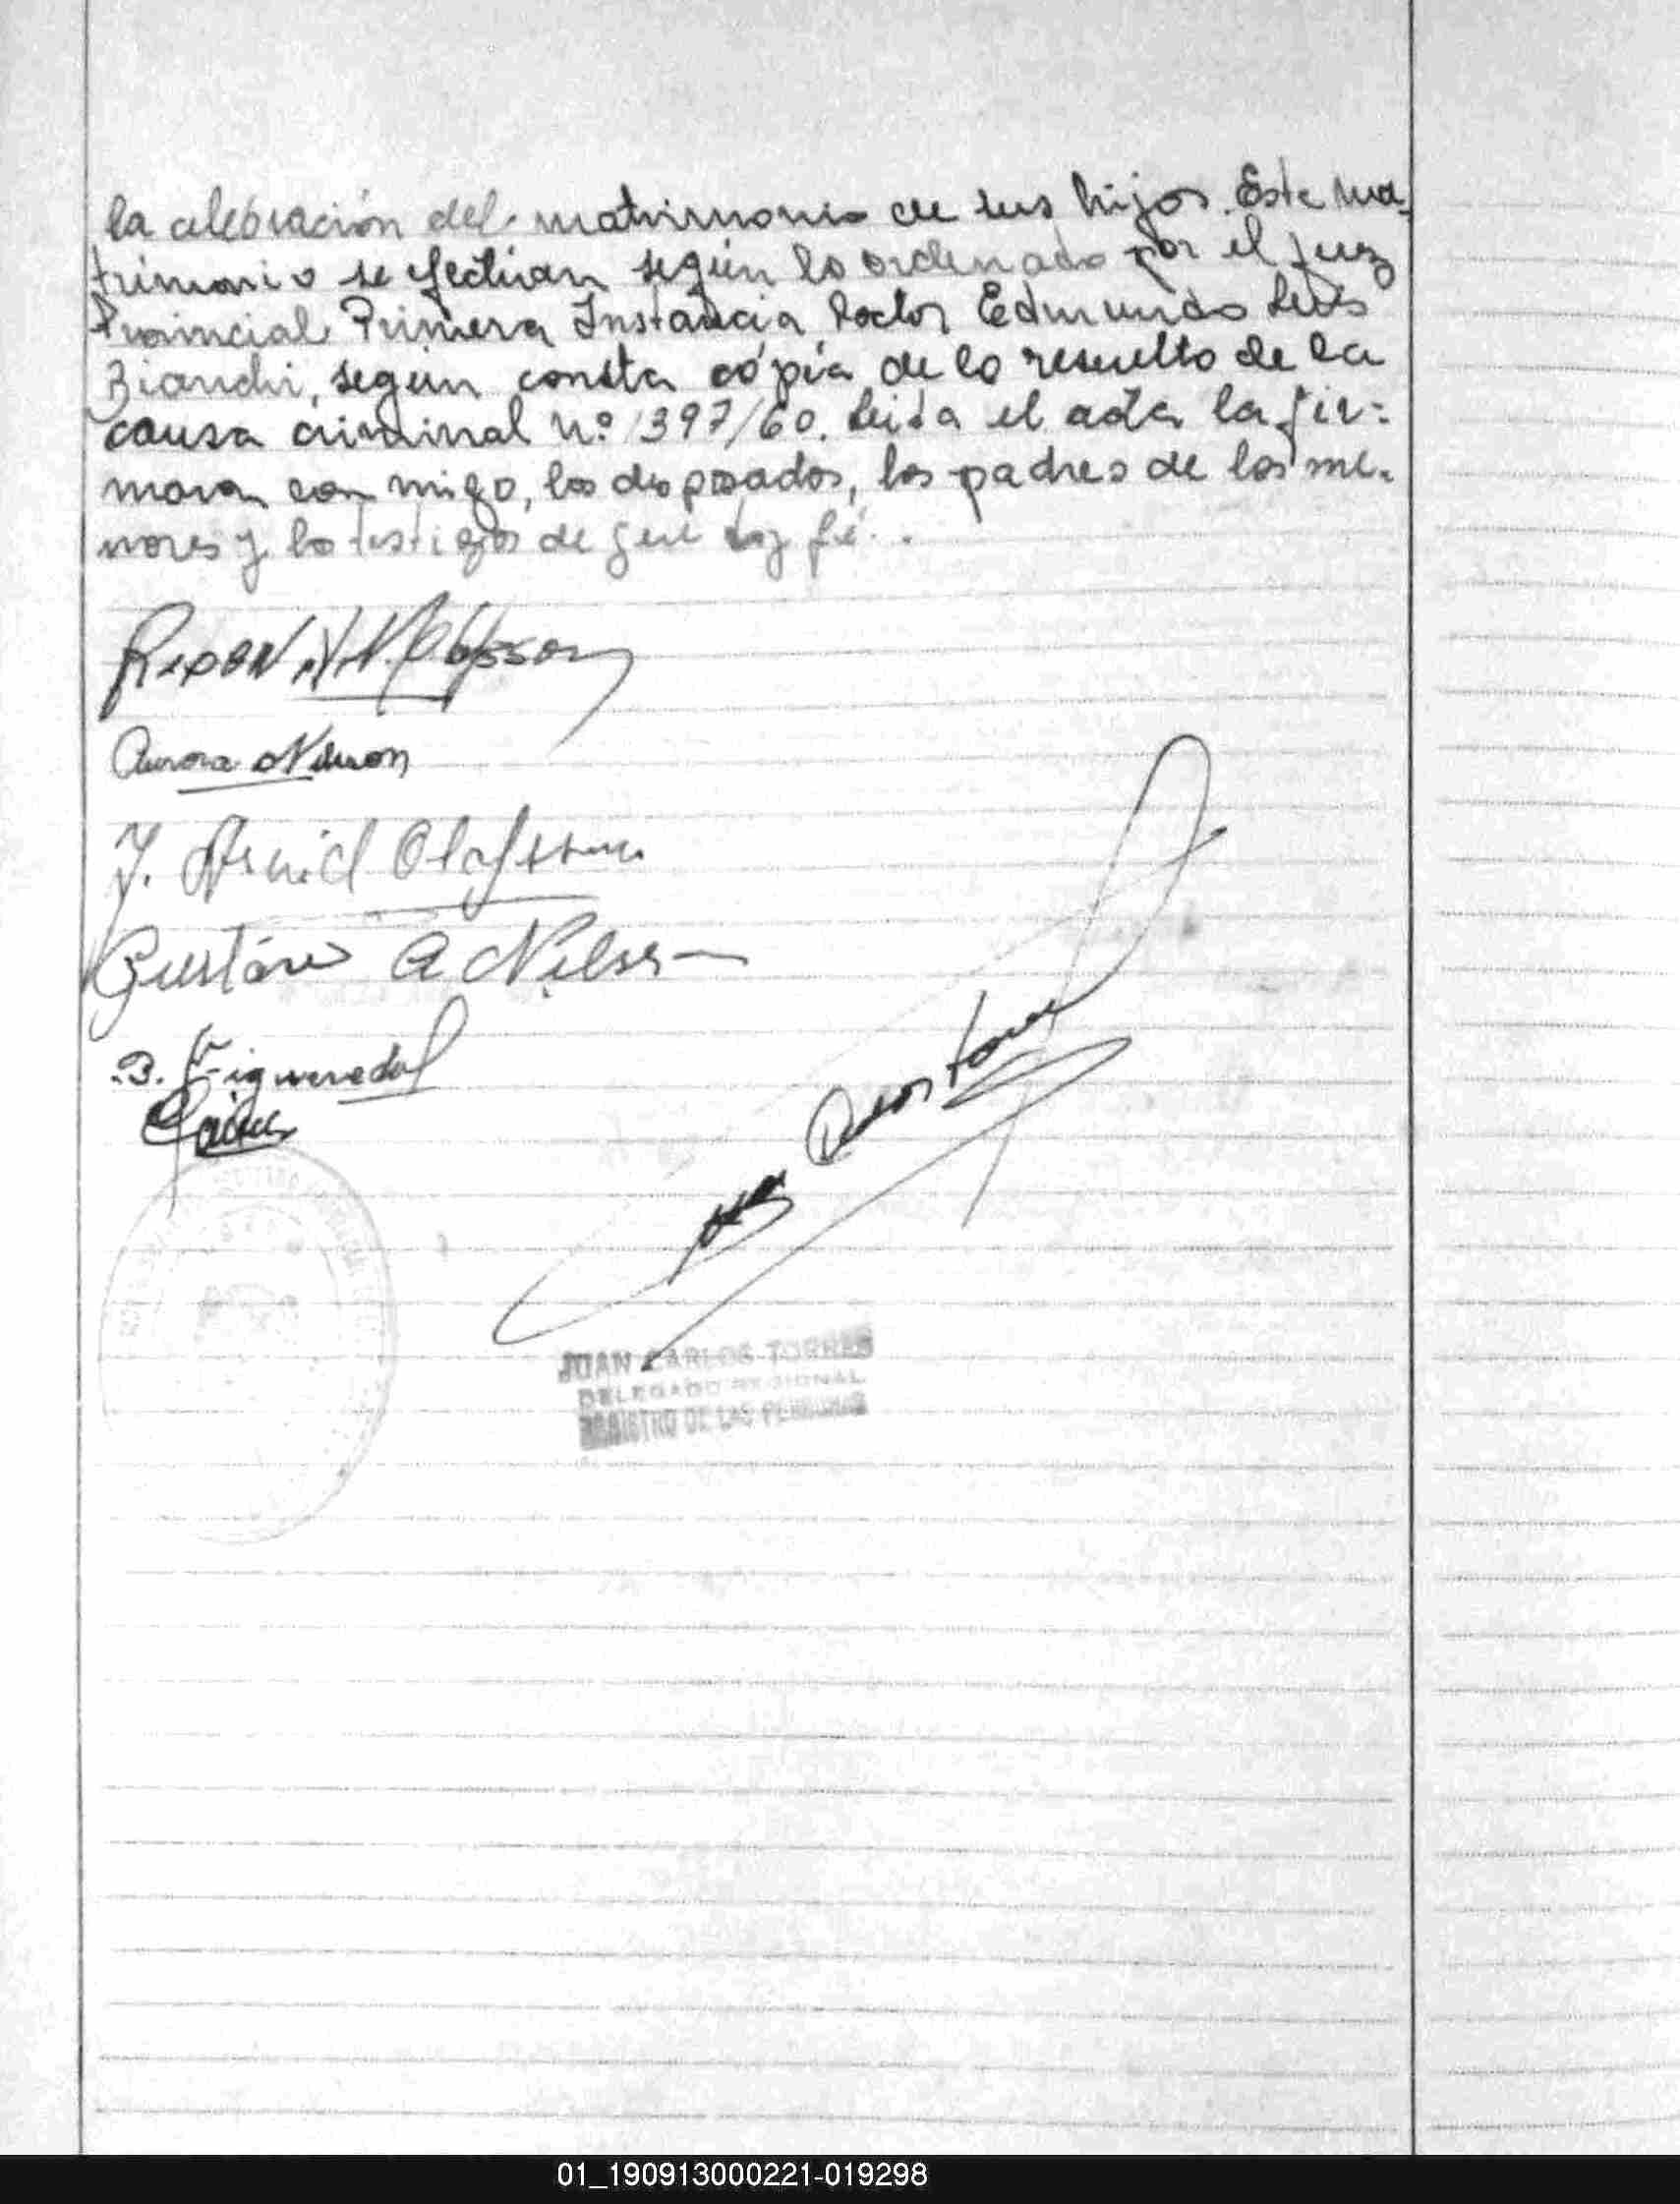 la celebración del matrimonio de sus hijos. Este ma-
trimonio se efectúan según lo ordenado por el Juez
Provincial Primera Instancia, Doctor Edmundo Luis
Bianchi, según consta cópia de lo resuelto de la
causa criminal Nº 1397/60. Leida el acta la fir-
maron con migo, los desposados, los padres de los me-
nores y los testigos de que doy fé.
N. Olafsson
Aurora Nilsson
Y. Arvid Olafsson
Gustavo A Nilsson
B. Figueredo
JUAN CARLOS TORRES
DELEGADO REGIONAL
REGISTRO DE LAS PERSONAS
01_190913000221-019298